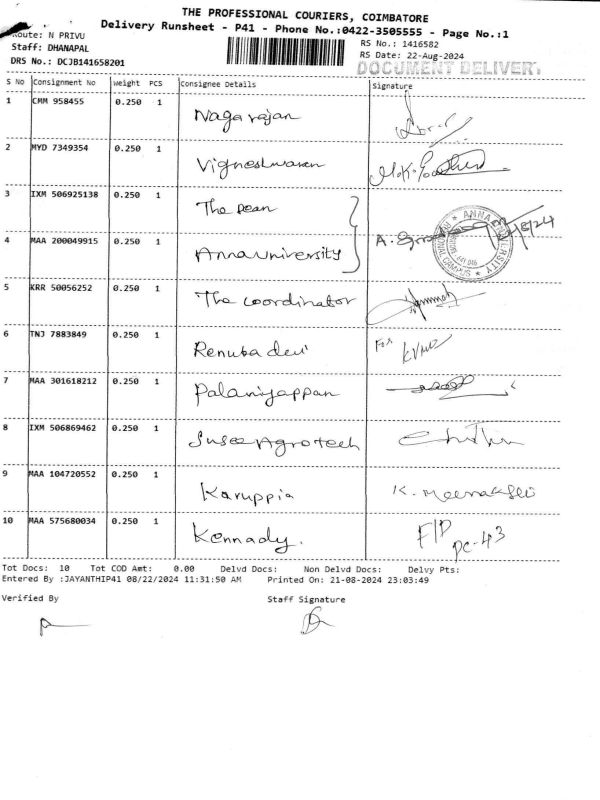 THE PROFESSIONAL COURIERS, COIMBATORE
Delivery Runsheet - P41 - Phone No.:0422-3505555 - Page No.:1
Route: N PRIVU
Staff: DHANAPAL
DRS No.: DCJB141658201
RS No.: 1416582
RS Date: 22-Aug-2024
DOCUMENT DELIVERY
S No Consignment No Weight PCS Consignee Details Signature
1 CMM 958455 0.250 1 Nagarajan
2 MYD 7349354 0.250 1 Vigneshwaran
3 IXM 506925138 0.250 1 The Dean
4 MAA 200049915 0.250 1 Anna University
5 KRR 50056252 0.250 1 The Coordinator
6 TNJ 7883849 0.250 1 Renuba devi For
7 MAA 301618212 0.250 1 Palaniyappan
8 IXM 506869462 0.250 1 Susee Agrotech
9 MAA 104720552 0.250 1 Karuppia K. Meenakshi
10 MAA 575680034 0.250 1 Kennady. F/D PC-43
Tot Docs: 10 Tot COD Amt: 0.00 Delvd Docs: Non Delvd Docs: Delvy Pts:
Entered By :JAYANTHIP41 08/22/2024 11:31:50 AM Printed On: 21-08-2024 23:03:49
Verified By Staff Signature